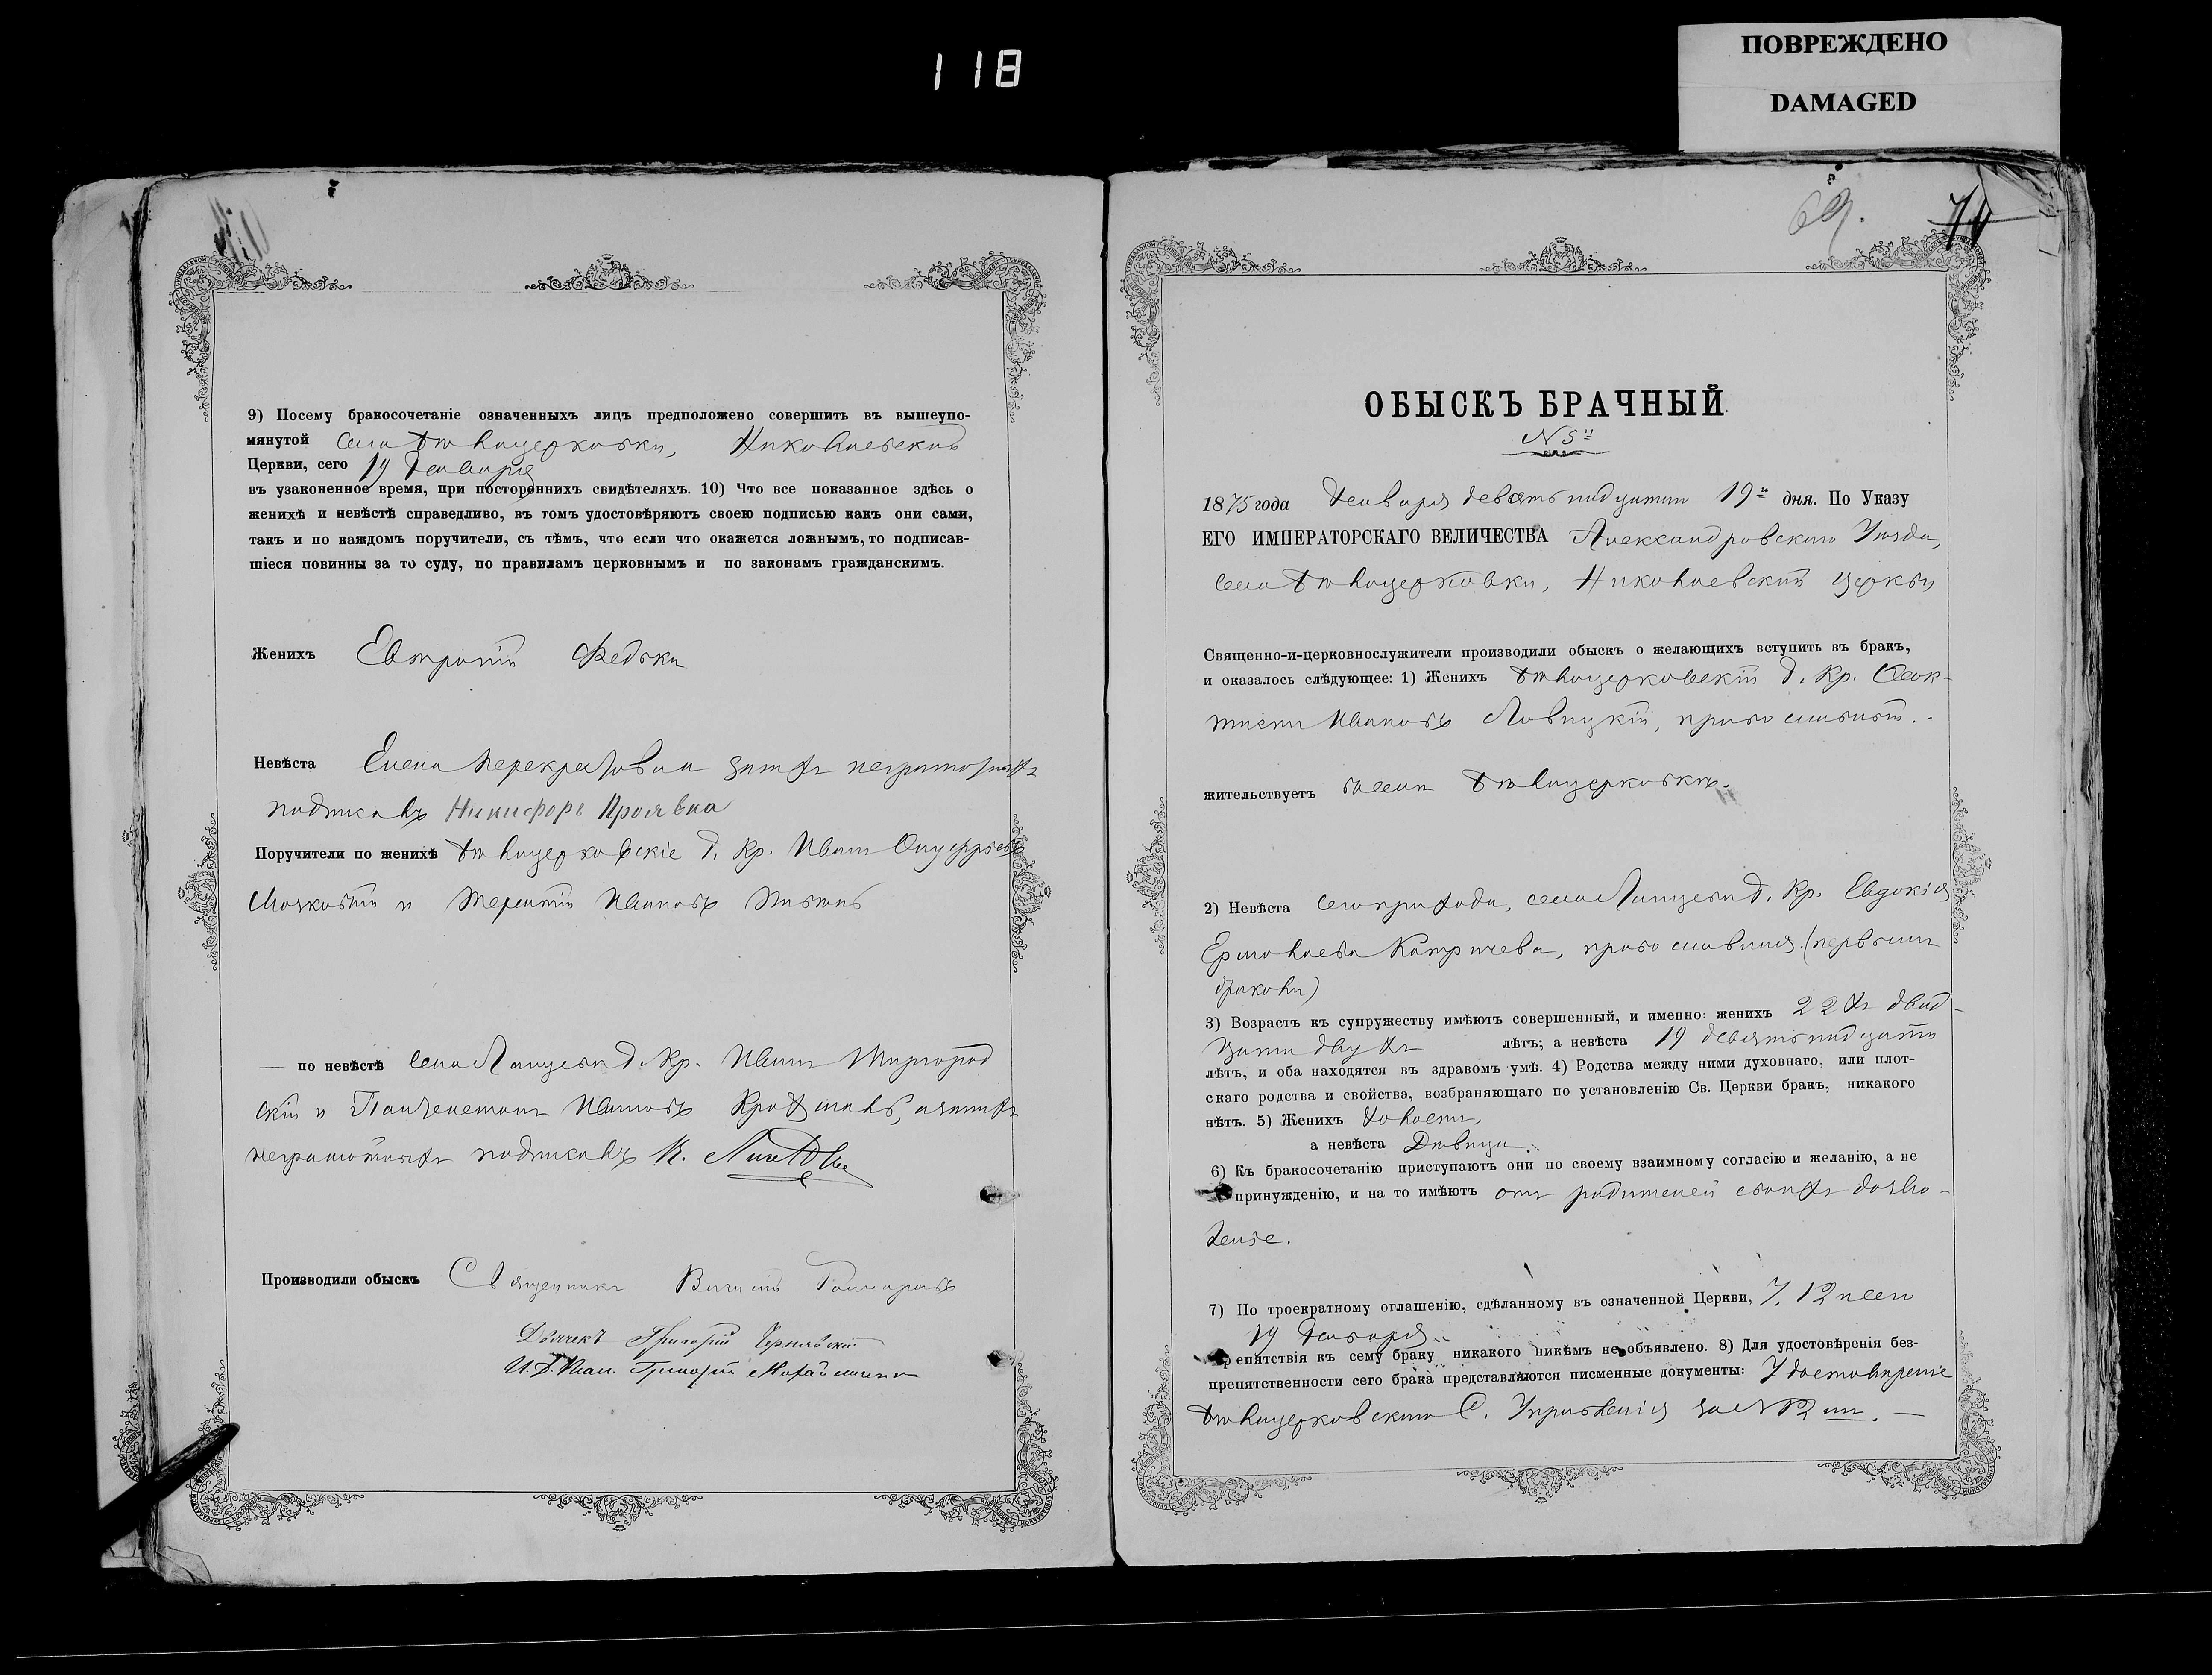 118
ПОВРЕЖДЕНО
DAMAGED
9) Посему бракосочетаніе означенныхъ лицъ предположено совершить въ вышеупо-
мянутой села Бѣлоцерковки, Николаевской
Церкви, сего 19 Января
въ узаконенное время, при постороннихъ свидѣтеляхъ. 10) Что все показанное здѣсь о
женихѣ и невѣстѣ справедливо, въ томъ удостовѣряютъ своею подписью какъ они сами,
такъ и по каждомъ поручители, съ тѣмъ, что если что окажется ложнымъ, то подписав-
шіеся повинны за то суду, по правиламъ церковнымъ и по законамъ гражданскимъ.
Женихъ Евтропій
Невѣста Елена за нихъ неграмотныхъ
подписалъ Никифоръ Проявка
Поручители по женихѣ Бѣлоцерковскіе Г. Кр. Иванъ
и Терентій Ивановъ
— по невѣстѣ села Г. Кр. Иванъ Миргород
скій и Пантелеймонъ Ивановъ а за нихъ
неграмотныхъ подписалъ
Производили обыскъ Священникъ
Дьячекъ Григорій Чернявскій
И. Д. Псал. Григорій
69. 70
ОБЫСКЪ БРАЧНЫЙ
N 5й
1875 года Января девятьнадцатаго 19го дня. По Указу
ЕГО ИМПЕРАТОРСКАГО ВЕЛИЧЕСТВА Александровскаго Уѣзда,
села Бѣлоцерковки, Николаевской церкви
Священно-и-церковнослужители производили обыскъ о желающихъ вступить въ бракъ,
и оказалось слѣдующее: 1) Женихъ Бѣлоцерковскій Г. Кр. Феок-
тистъ Ивановъ Ловицкій, православный.
жительствуетъ въ селѣ Бѣлоцерковкѣ.
2) Невѣста сего прихода, села Г. Кр. Евдокія
Ермолаева Катричева, православная (первымъ
бракомъ)
3) Возрастъ къ супружеству имѣютъ совершенный, и именно: женихъ 22хъ двад-
цати двухъ лѣтъ; а невѣста 19 девятьнадцати
лѣтъ, и оба находятся въ здравомъ умѣ. 4) Родства между ними духовнаго, или плот-
скаго родства и свойства, возбраняющаго по установленію Св. Церкви бракъ, никакого
нѣтъ. 5) Женихъ холостъ,
а невѣста Дѣвица.
6) Къ бракосочетанію приступаютъ они по своему взаимному согласію и желанію, а не
принужденію, и на то имѣютъ отъ родителей своихъ дозво-
леніе.
7) По троекратному оглашенію, сдѣланному въ означенной Церкви, 7, 12 и
19 Января
епятствія къ сему браку никакого никѣмъ не объявлено. 8) Для удостовѣренія без-
препятственности сего брака представляются писменные документы: Удостовѣреніе
Бѣлоцерковскаго С. Управленія за N 12мъ. —